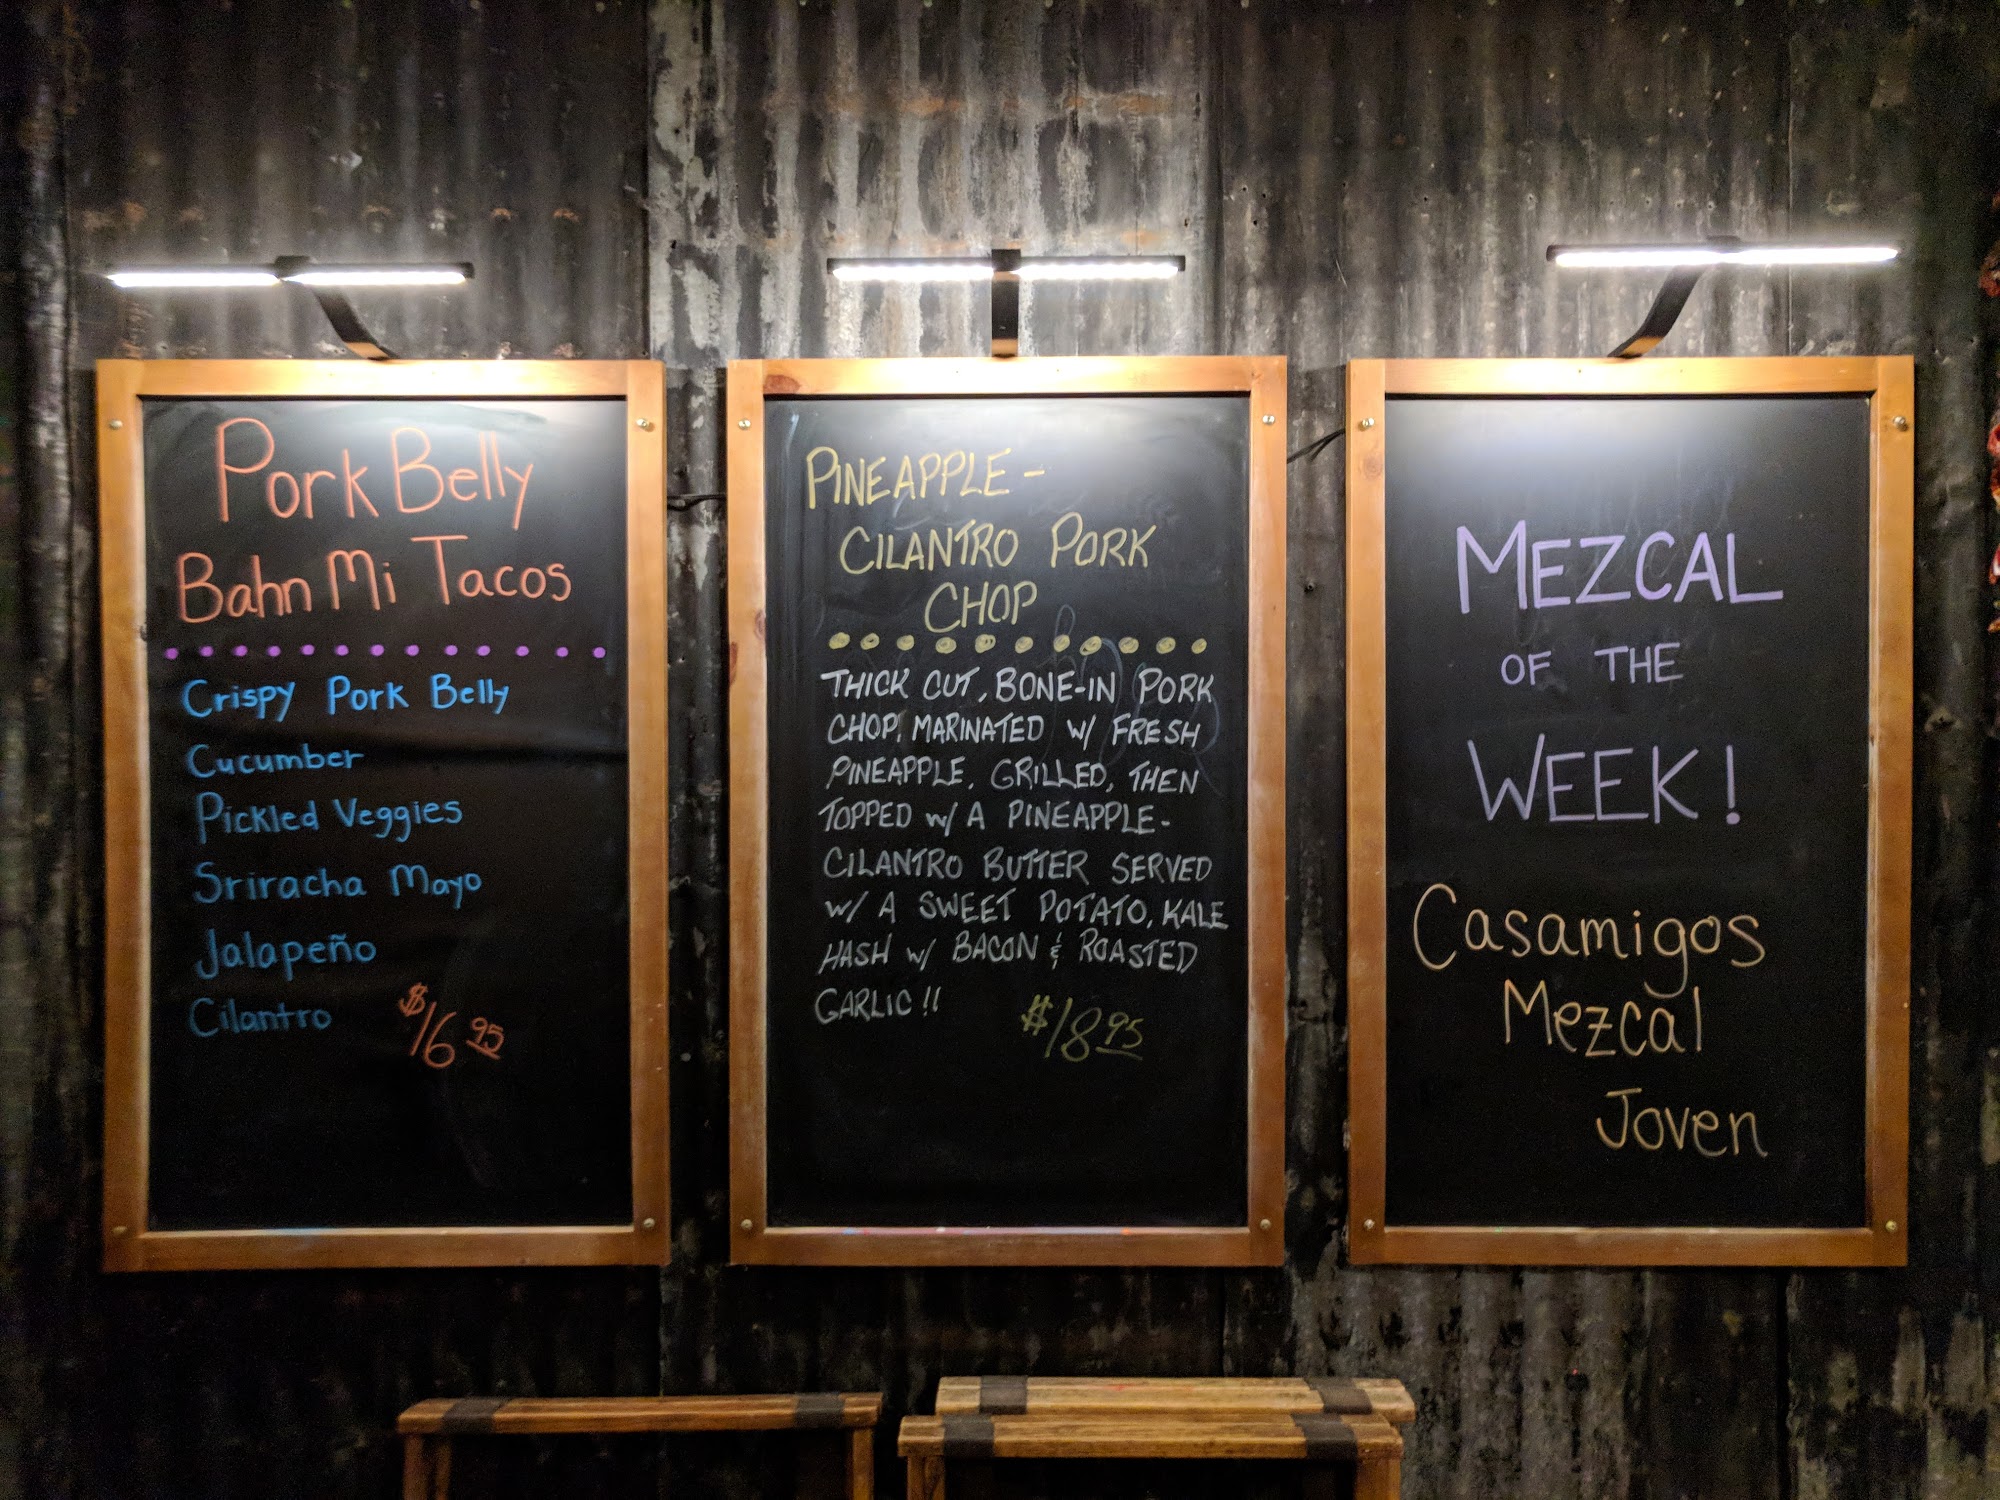 Pork Belly
Bahn Mi Tacos
Crispy Pork Belly
Cucumber
Pickled Veggies
Sriracha Mayo
Jalapeño
Cilantro
$16 95
PINEAPPLE-
CILANTRO PORK
CHOP
THICK CUT, BONE-IN PORK
CHOP, MARINATED W/ FRESH
PINEAPPLE, GRILLED, THEN
TOPPED W/ A PINEAPPLE-
CILANTRO BUTTER SERVED
W/ A SWEET POTATO, KALE
HASH W/ BACON & ROASTED
GARLIC!!
$18 95
MEZCAL
OF THE
WEEK!
Casamigos
Mezcal
Joven